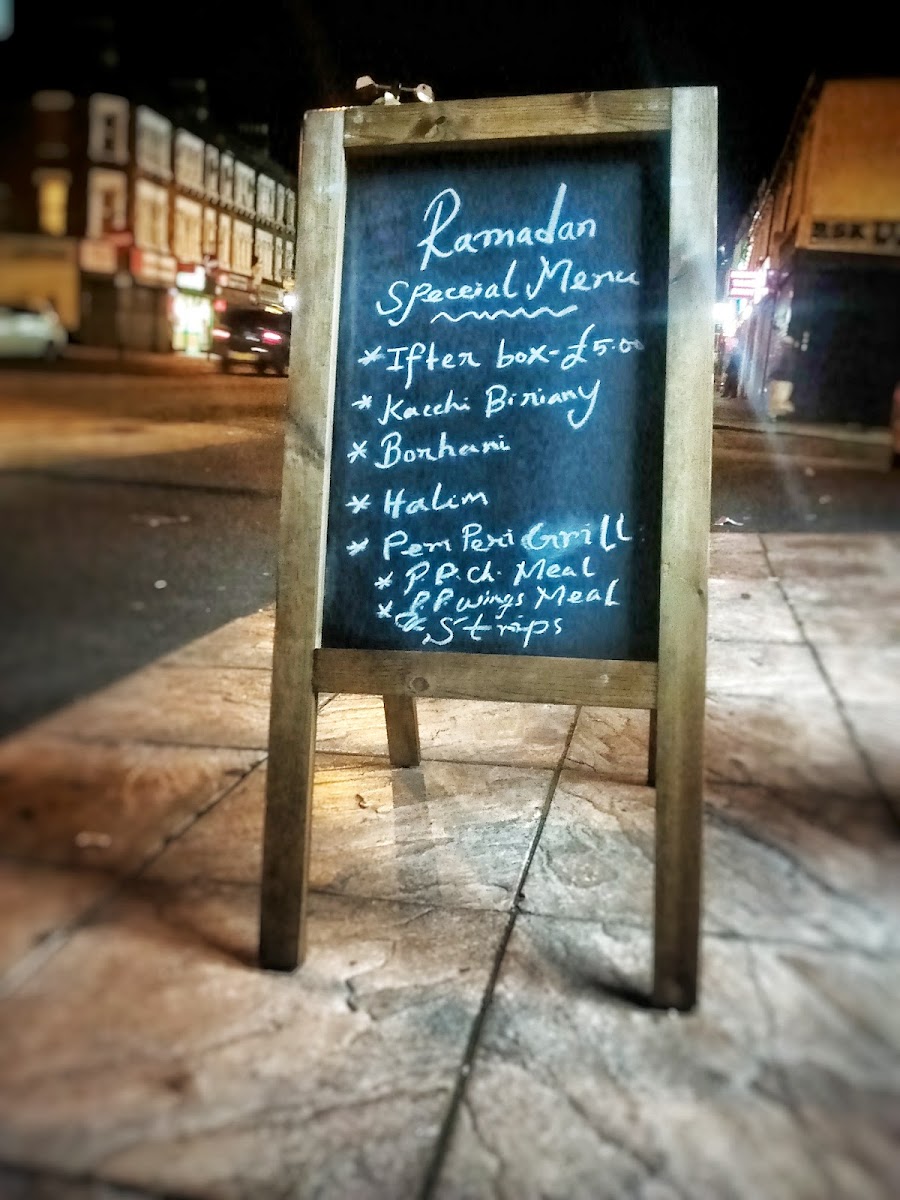 Ramadan
Speceial Menu
* Ifter box - £5.00
* Kacchi Biriany
* Borhani
* Halim
* Perri Peri Grill
* P.P. Ch. Meal
* P.P. Wings Meal
& Strips